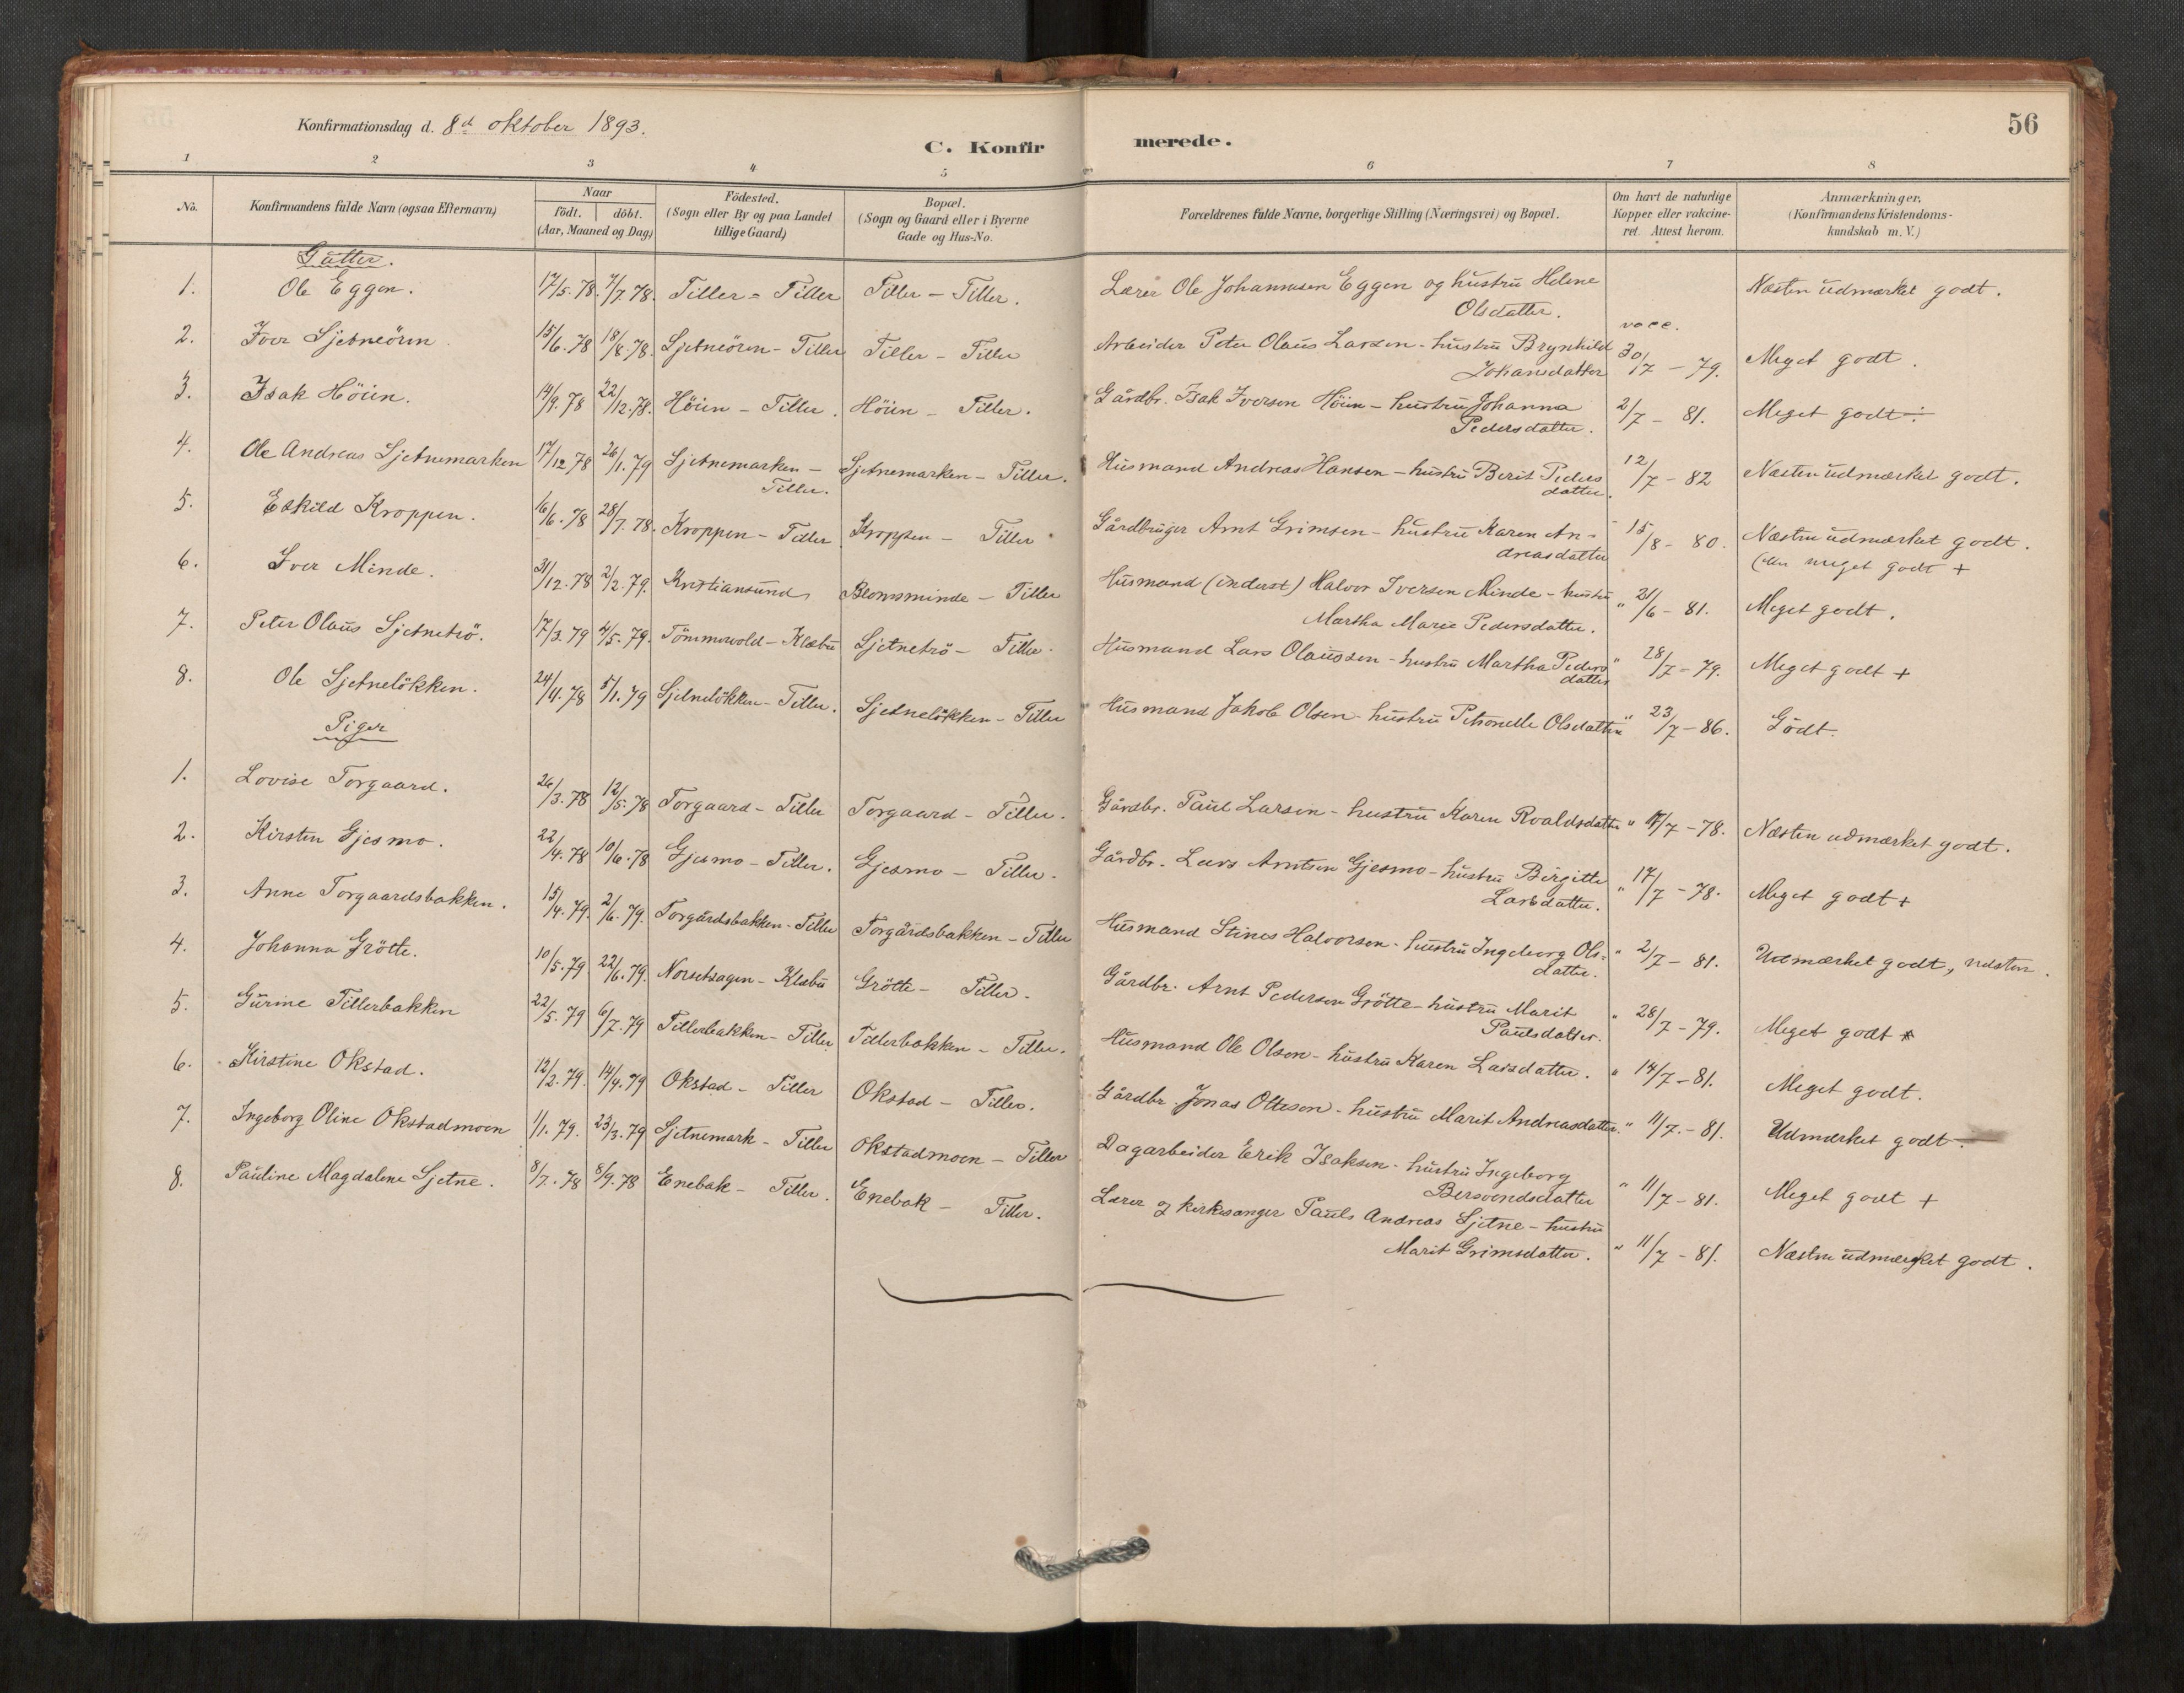 56
Konfirmationsdag d. 8d oktober 1893.
C. Konfirmerede.
1 2 3 4 5 6 7 8
No. Konfirmandens fulde Navn (ogsaa Efternavn) Naar födt. döbt. (Aar, Maaned og Dag) Födested. (Sogn eller By og paa Landet tillige Gaard) Bopæl. (Sogn og Gaard eller i Byerne Gade og Hus-No. Forældrenes fulde Navne, borgerlige Stilling (Næringsvei) og Bopæl. Om havt de naturlige Kopper eller vakcineret. Attest herom. Anmærkninger. (Konfirmandens Kristendomskundskab m. V.)
Gutter.
1. Ole Eggen. 17/5.78. 7/7.78. Tiller = Tiller Tiller - Tiller. Lærer Ole Johannesen Eggen og hustru Helene Olsdatter. Næsten udmærket godt.
2. Iver Sjetneören 15/6.78 18/8.78. Sjetneören - Tiller Tiller - Tiller Arbeider Peter Olaus Larsen - hustru Brynhild Johansdatter vacc. 30/7 - 79. Meget godt.
3. Isak Höiin. 14/9.78 22/12.78. Höiin - Tiller. Höiin - Tiller. Gårdbr. Isak Iversen Höiin - hustru Johanna Pedersdatter. 2/7 - 81. Meget godt
4. Ole Andreas Sjetnemarken 17/12 78 26/1.79 Sjetnemarken - Tiller. Sjetnemarken - Tiller. Husmand Andreas Hansen - hustru Berit Pedersdatter. 12/7 - 82 Næsten udmærket godt.
5. Eskild Kroppen. 16/6.78 28/7.78. Kroppen - Tiller Kroppen - Tiller Gårdbruger Arnt Grimsen - hustru Karen Andreasdatter 15/8 - 80. Næsten udmærket godt. meget godt +
6. Iver Minde. 31/12.78 2/2.79. Kristiansund Blomsminde - Tiller Husmand (inderst) Halvor Iversen Minde - hustru Martha Marie Pedersdatter. " 21/6 - 81. Meget godt.
7. Peter Olaus Sjetnetrö. 17/3.79 4/5.79. Tömmervold - Klæbu Sjetnetrö - Tiller. Husmand Lars Olaussen - hustru Martha Pedersdatter " 28/7 - 79. Meget godt +
8. Ole Sjetnelökken. 24/11.78 5/1.79 Sjetnelökken - Tiller. Sjetnelökken - Tiller Husmand Jakob Olsen - hustru Petronelle Olsdatter " 23/7 - 86. Godt.
Piger
1. Lovise Torgaard. 26/3.78 12/5.78 Torgaard - Tiller Torgaard - Tiller. Gårdbr. Paul Larsen - hustru Karen Roaldsdatter " 17/7 - 78. Næsten udmærket godt.
2. Kirsten Gjesmo. 22/4.78 10/6.78 Gjesmo - Tiller. Gjesmo - Tiller. Gårdbr. Lars Arntsen Gjesmo - hustru Birgitte Larsdatter. " 17/7 - 78. Meget godt +
3. Anne Torgaardsbakken. 15/4.79. 2/6.79. Torgårdsbakken - Tiller Torgårdsbakken - Tiller Husmand Stines Halvorsen - hustru Ingeborg Olsdatter. " 2/7 - 81. Udmærket godt, næsten.
4. Johanna Grötte. 10/5.79 22/6.79. Norsetsagen - Klæbu Grötte - Tiller. Gårdbr. Arnt Pedersen Grötte - hustru Marit Paulsdatter. " 28/7 - 79. Meget godt +
5. Gurine Tillerbakken 22/5.79 6/7.79 Tillerbakken - Tiller Tillerbakken - Tiller. Husmand Ole Olsen - hustru Karen Larsdatter. " 14/7 - 81. Meget godt.
6. Kirstine Okstad. 12/2.79. 14/4.79 Okstad - Tiller Okstad - Tiller. Gårdbr. Jonas Ottesen - hustru Marit Andreasdatter. " 11/7. - 81. Udmærket godt
7. Ingeborg Oline Okstadmoen 1/1.79. 23/3.79 Sjetnemark - Tiller Okstadmoen - Tiller Dagarbeider Erik Isaksen - hustru Ingeborg Bersvendsdatter " 11/7 - 81. Meget godt +
8. Pauline Magdalene Sjetne. 8/7.78 8/9.78 Enebak - Tiller. Enebak - Tiller. Lærer og kirkesanger Pauls Andreas Sjetne - hustru Marit Grimsdatter. " 11/7 - 81. Næsten udmærket godt.